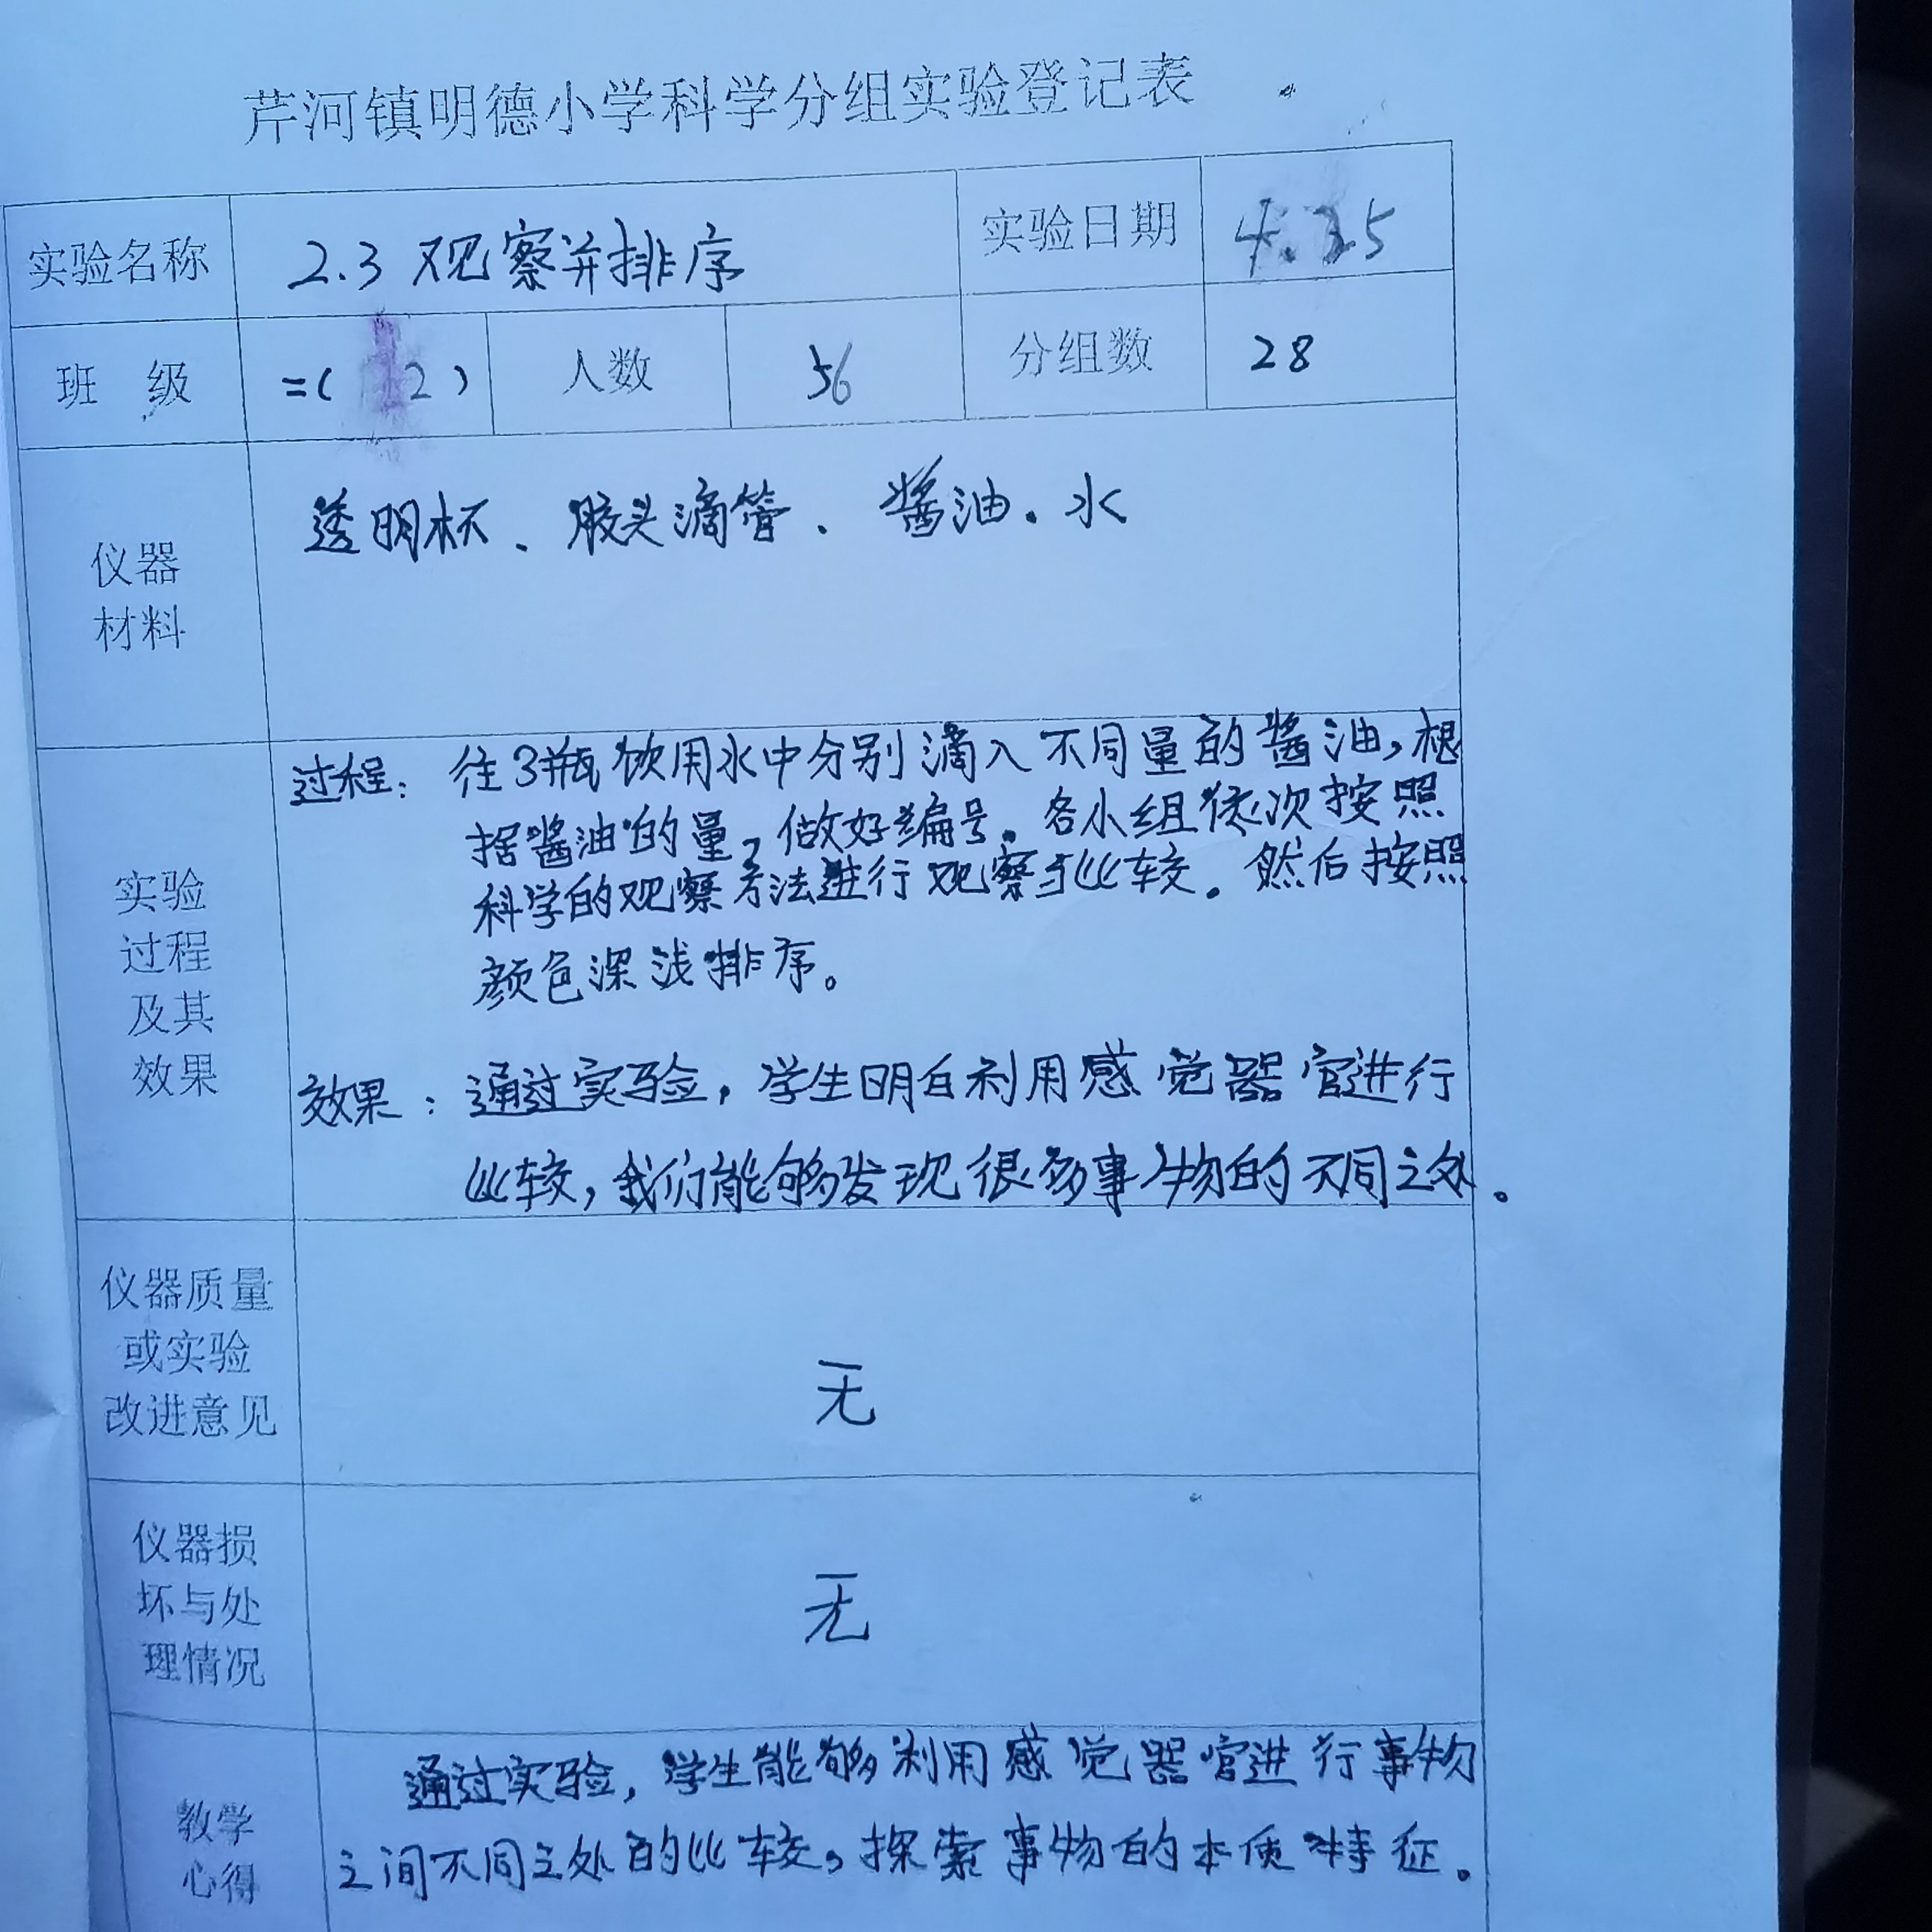 芹河镇明德小学科学分组实验登记表
实验名称 2.3 观察并排序 实验日期
班 级 二( 2) 人数 56 分组数 28
仪器
材料
透明杯、胶头滴管、酱油、水
实验
过程
及其
效果
过程：往3瓶饮用水中分别滴入不同量的酱油，根
据酱油的量，做好编号。各小组依次按照
科学的观察方法进行观察与比较。然后按照
颜色深浅排序。
效果：通过实验，学生明白利用感觉器官进行
比较，我们能够发现很多事物的不同之处。
仪器质量
或实验
改进意见
无
仪器损
坏与处
理情况
无
教学
心得
通过实验，学生能够利用感觉器官进行事物
之间不同之处的比较，探索事物的本质特征。